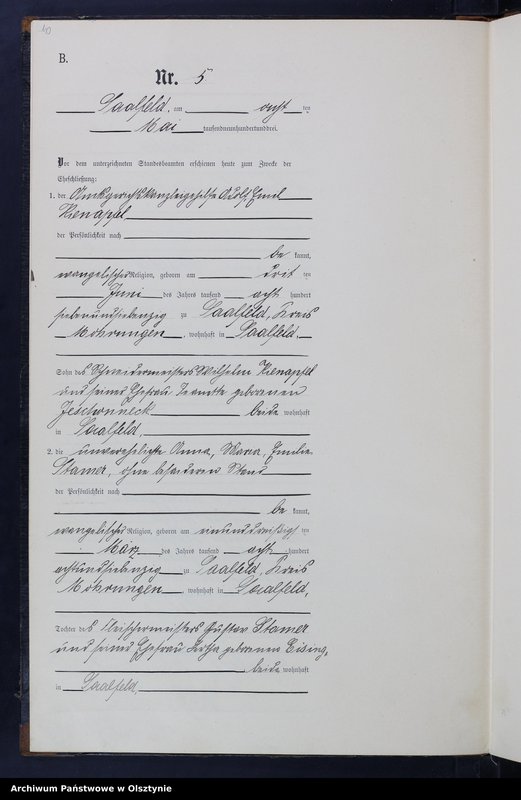 40
B.
Nr. 5
Saalfeld, am acht ten
Mai tausendneunhundertunddrei.
Vor dem unterzeichneten Standesbeamten erschienen heute zum Zwecke der
Eheschließung:
1. der Amtsgerichtskanzleigehilfe Adolf, Emil
Kienapfel
der Persönlichkeit nach
be kannt,
evangelischer Religion, geboren am drit ten
Juni des Jahres tausend acht hundert
siebenundsiebenzig zu Saalfeld, Kreis
Mohrungen, wohnhaft in Saalfeld.
Sohn des Schneidermeisters Wilhelm Kienapfel
und seiner Ehefrau geborenen
Jeschonneck beide wohnhaft
in Saalfeld,
2. die unverehelichte Anna, Maria, Emilie
Stamer, ohne besonderen Stand
der Persönlichkeit nach
be kannt,
evangelischer Religion, geboren am einunddreißigs ten
März des Jahres tausend acht hundert
achtundsiebenzig zu Saalfeld, Kreis
Mohrungen, wohnhaft in Saalfeld,
Tochter des Fleischermeisters Gustav Stamer
und seiner Ehefrau Bertha geborenen Eising,
beide wohnhaft
in Saalfeld,
Archiwum Państwowe w Olsztynie